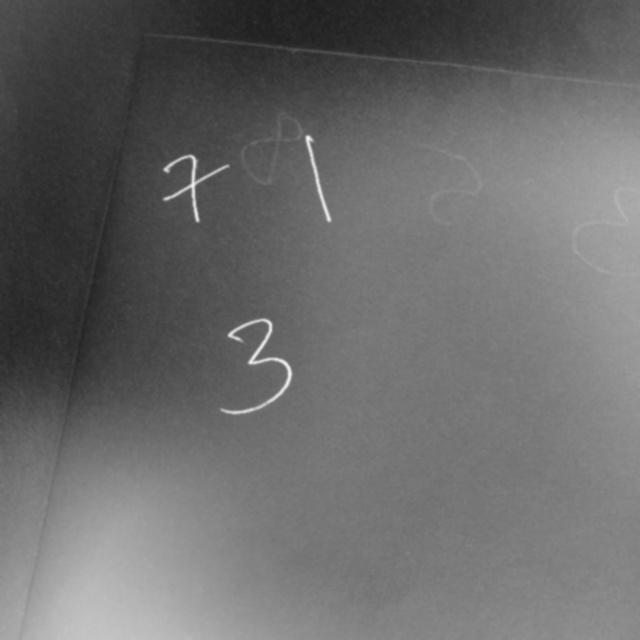 7 1
3